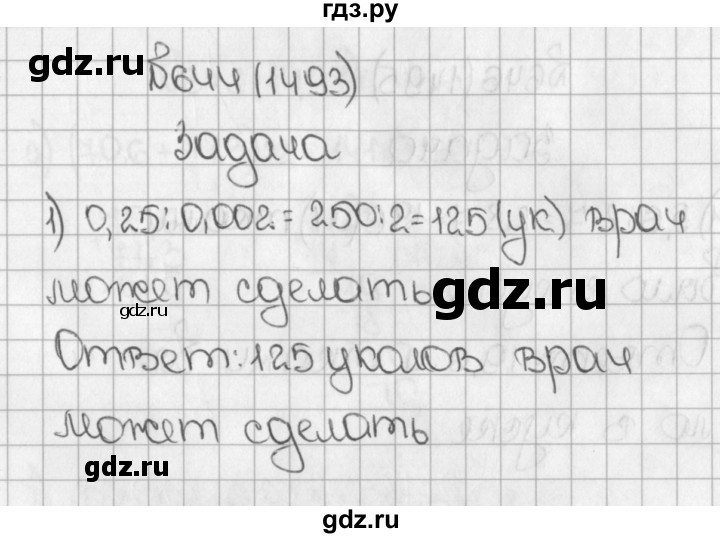 гдз.ру
№644 (1493)
gdz.ru
Задача
1) 0,25:0,002=250:2=125 (ук) врач
может сделать
gdz.ru
gdz.ru
Ответ: 125 уколов врач
может сделать
gdz.ru
gdz.ru
gdz.ru